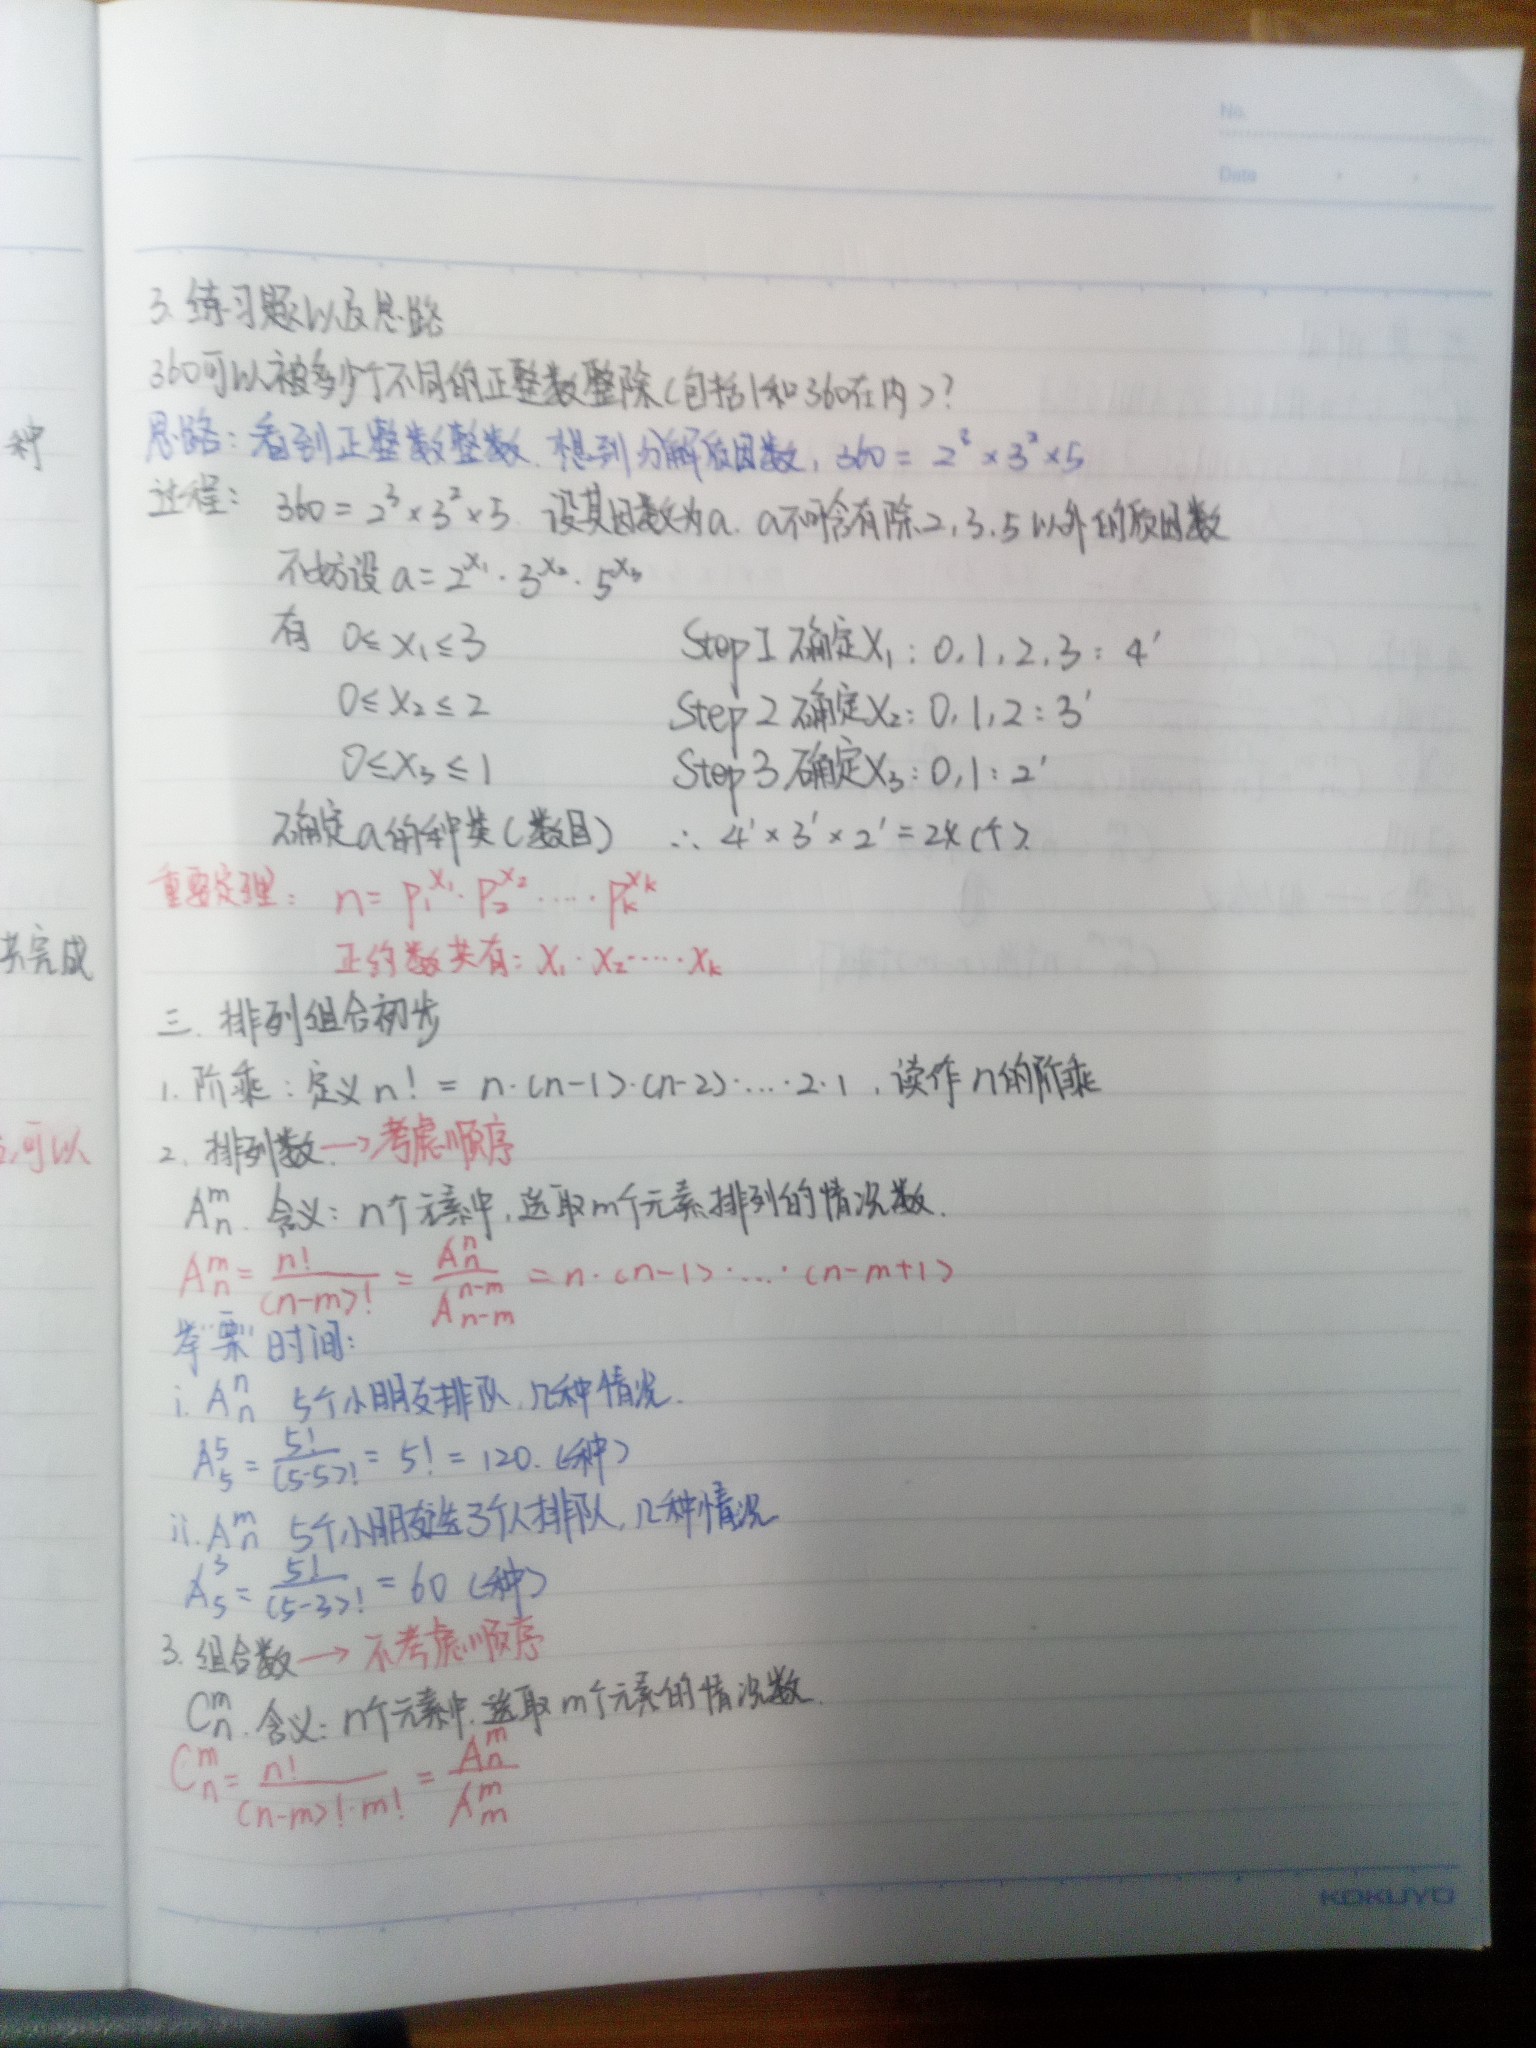 No.
Date
3. 练习题以及思路
360可以被多少个不同的正整数整除(包括1和360在内)?
种
思路: 看到正整数整数, 想到分解质因数, 360 = 2³ × 3² × 5
过程: 360 = 2³ × 3² × 5. 设其因数为a. a不可含有除2, 3, 5以外的质因数
不妨设 a = 2^x₁ · 3^x₂ · 5^x₃
有 0 ≤ x₁ ≤ 3 Step 1 确定x₁: 0, 1, 2, 3: 4'
0 ≤ x₂ ≤ 2 Step 2 确定x₂: 0, 1, 2: 3'
0 ≤ x₃ ≤ 1 Step 3 确定x₃: 0, 1: 2'
确定a的种类(数目) ∴ 4' × 3' × 2' = 24(个)
重要定理: n = p₁^x₁ · p₂^x₂ · … · pₖ^xₖ
共完成
正约数共有: x₁ · x₂ · … · xₖ
三. 排列组合初步
1. 阶乘: 定义 n! = n·(n-1)·(n-2)·…·2·1, 读作n的阶乘
可以
2. 排列数 → 考虑顺序
Aₙᵐ. 含义: n个元素中, 选取m个元素排列的情况数.
Aₙᵐ = n!/(n-m)! = Aₙⁿ/Aₙ₋ₘⁿ⁻ᵐ = n·(n-1)·…·(n-m+1)
举"栗"时间:
i. Aₙⁿ 5个小朋友排队, 几种情况.
A₅⁵ = 5!/(5-5)! = 5! = 120. (种)
ii. Aₙᵐ 5个小朋友选3个人排队, 几种情况
A₅³ = 5!/(5-3)! = 60 (种)
3. 组合数 → 不考虑顺序
Cₙᵐ. 含义: n个元素中, 选取m个元素的情况数.
Cₙᵐ = n!/(n-m)!·m! = Aₙᵐ/Aₘᵐ
KOKUYO